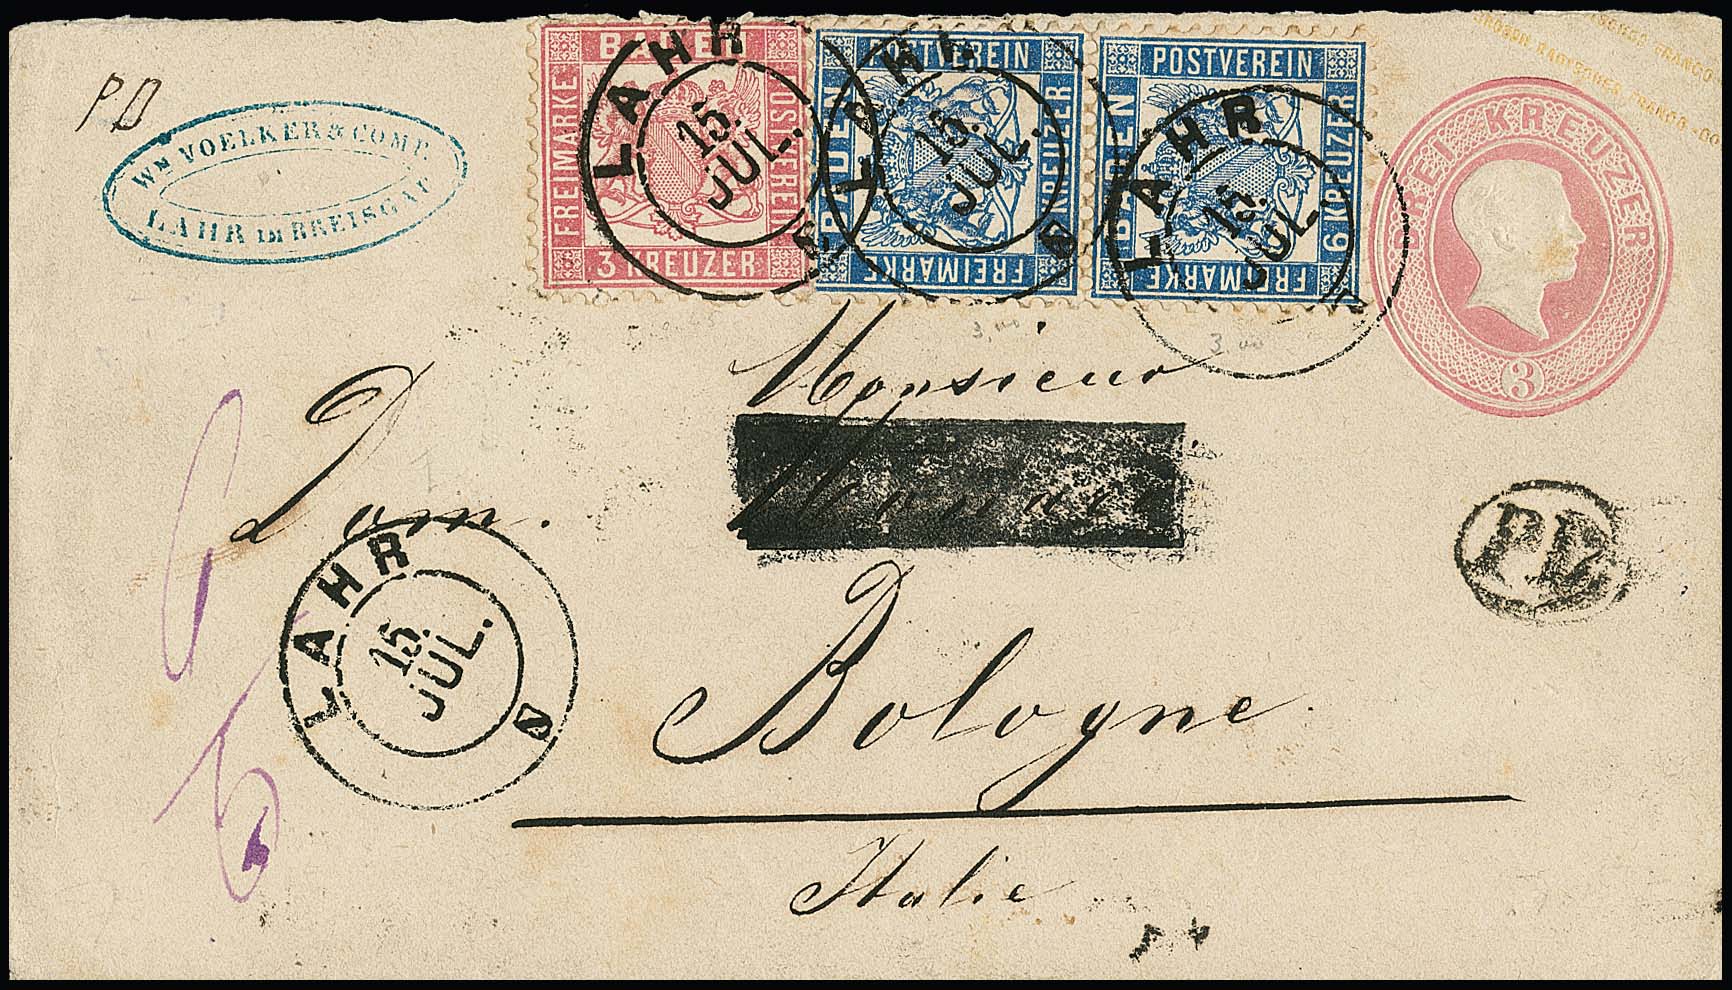 P D
WM VOELKER & COMP.
LAHR IM BREISGAU
BADEN
FREIMARKE
POSTVEREIN
3 KREUZER
POSTVEREIN
BADEN
6 KREUZER
FREIMARKE
POSTVEREIN
BADEN
6 KREUZER
FREIMARKE
LAHR
15.
JUL.
LAHR
15.
JUL.
LAHR
15.
JUL.
DREI KREUZER
3
3,00
3,00
Monsieur
Dom.
LAHR
15.
JUL.
PD
Bologne
Italie